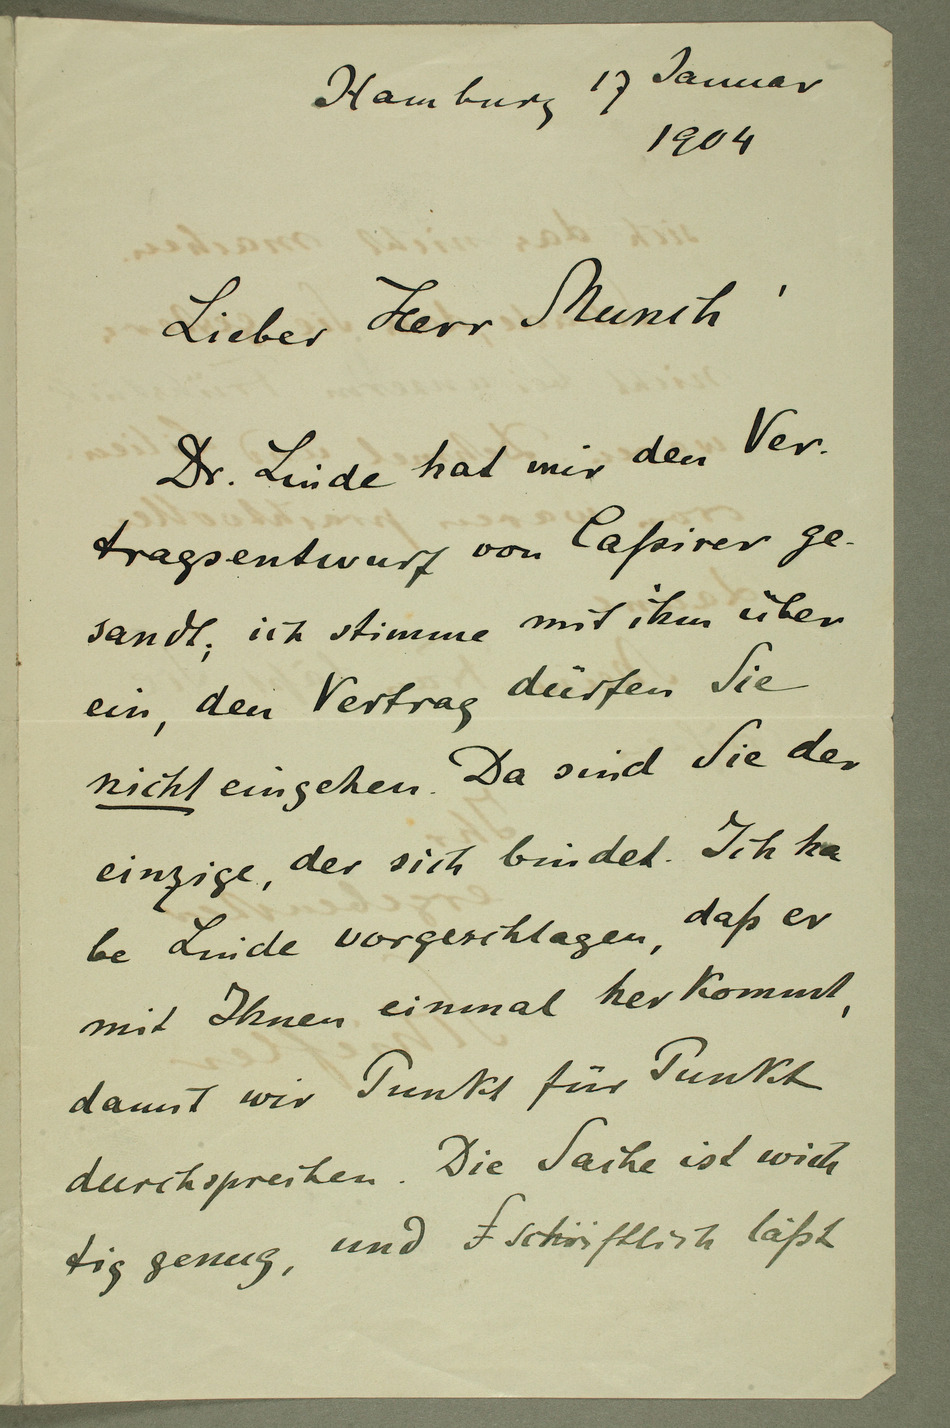 Hamburg 17 Januar
1904
Lieber Herr Munch!
Dr. Linde hat mir den Ver-
tragsentwurf von Caßirer ge-
sandt; ich stimme mit ihm über
ein, den Vertrag dürfen Sie
nicht eingehen. Da sind Sie der
einzige, der sich bindet. Ich ha
be Linde vorgeschlagen, daß er
mit Ihnen einmal her kommt,
damit wir Punkt für Punkt
durchsprechen. Die Sache ist wich
tig genug, und schriftlich läßt